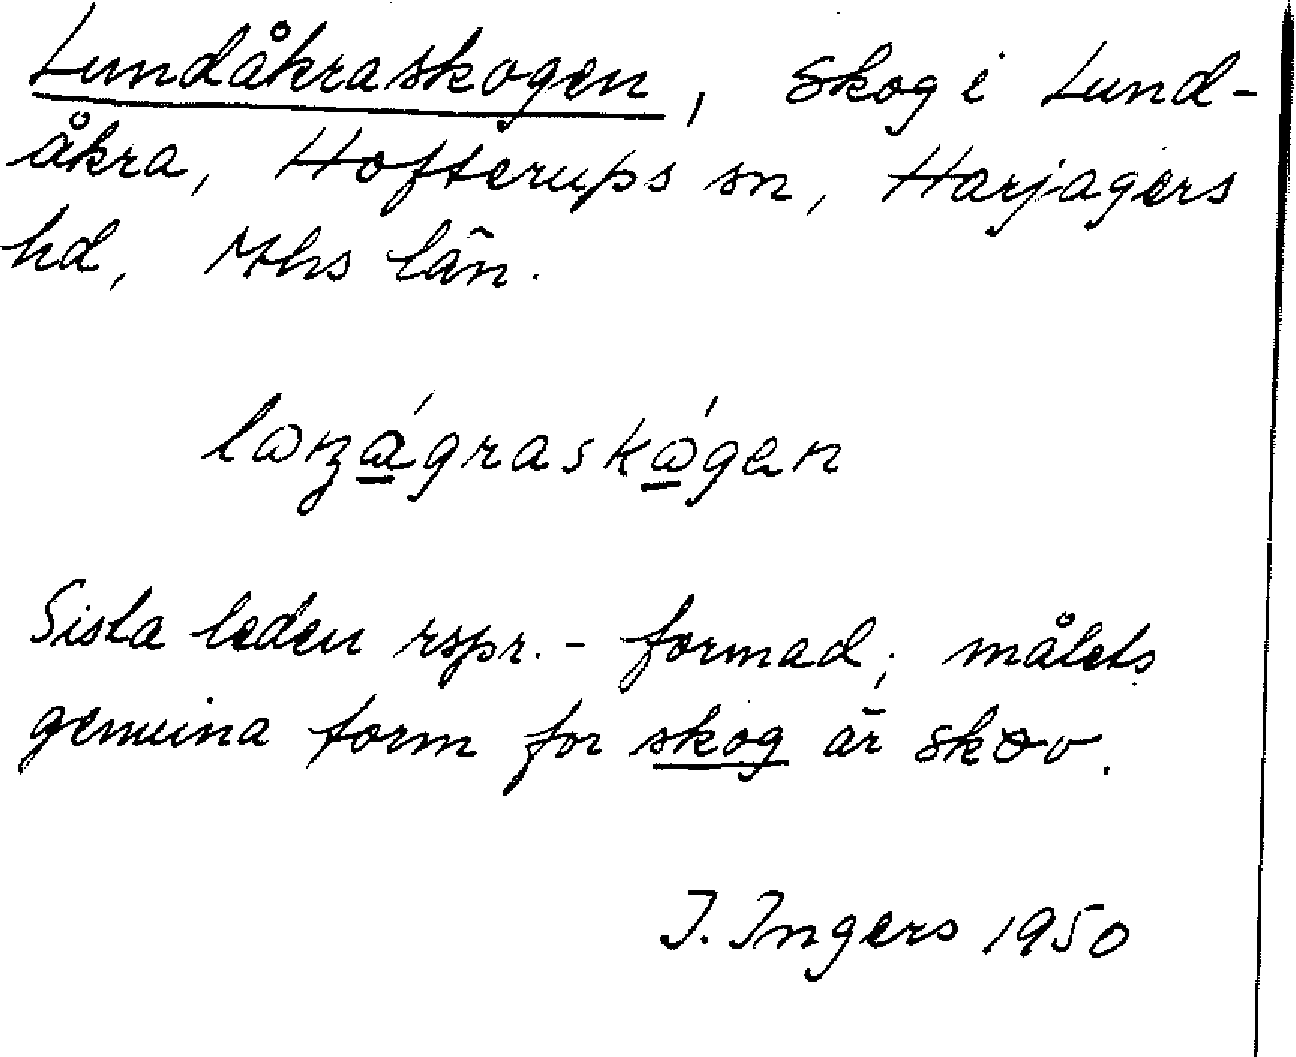 Lundåkraskogen, skog i Lund-
åkra, Hofterups sn, Harjagers
hd, Mhs län.
lɷnɀɷ́graskɷ́gen
Sista leden rspr.-formad; målets
genuina form för skog är skov.
I. Ingers 1950